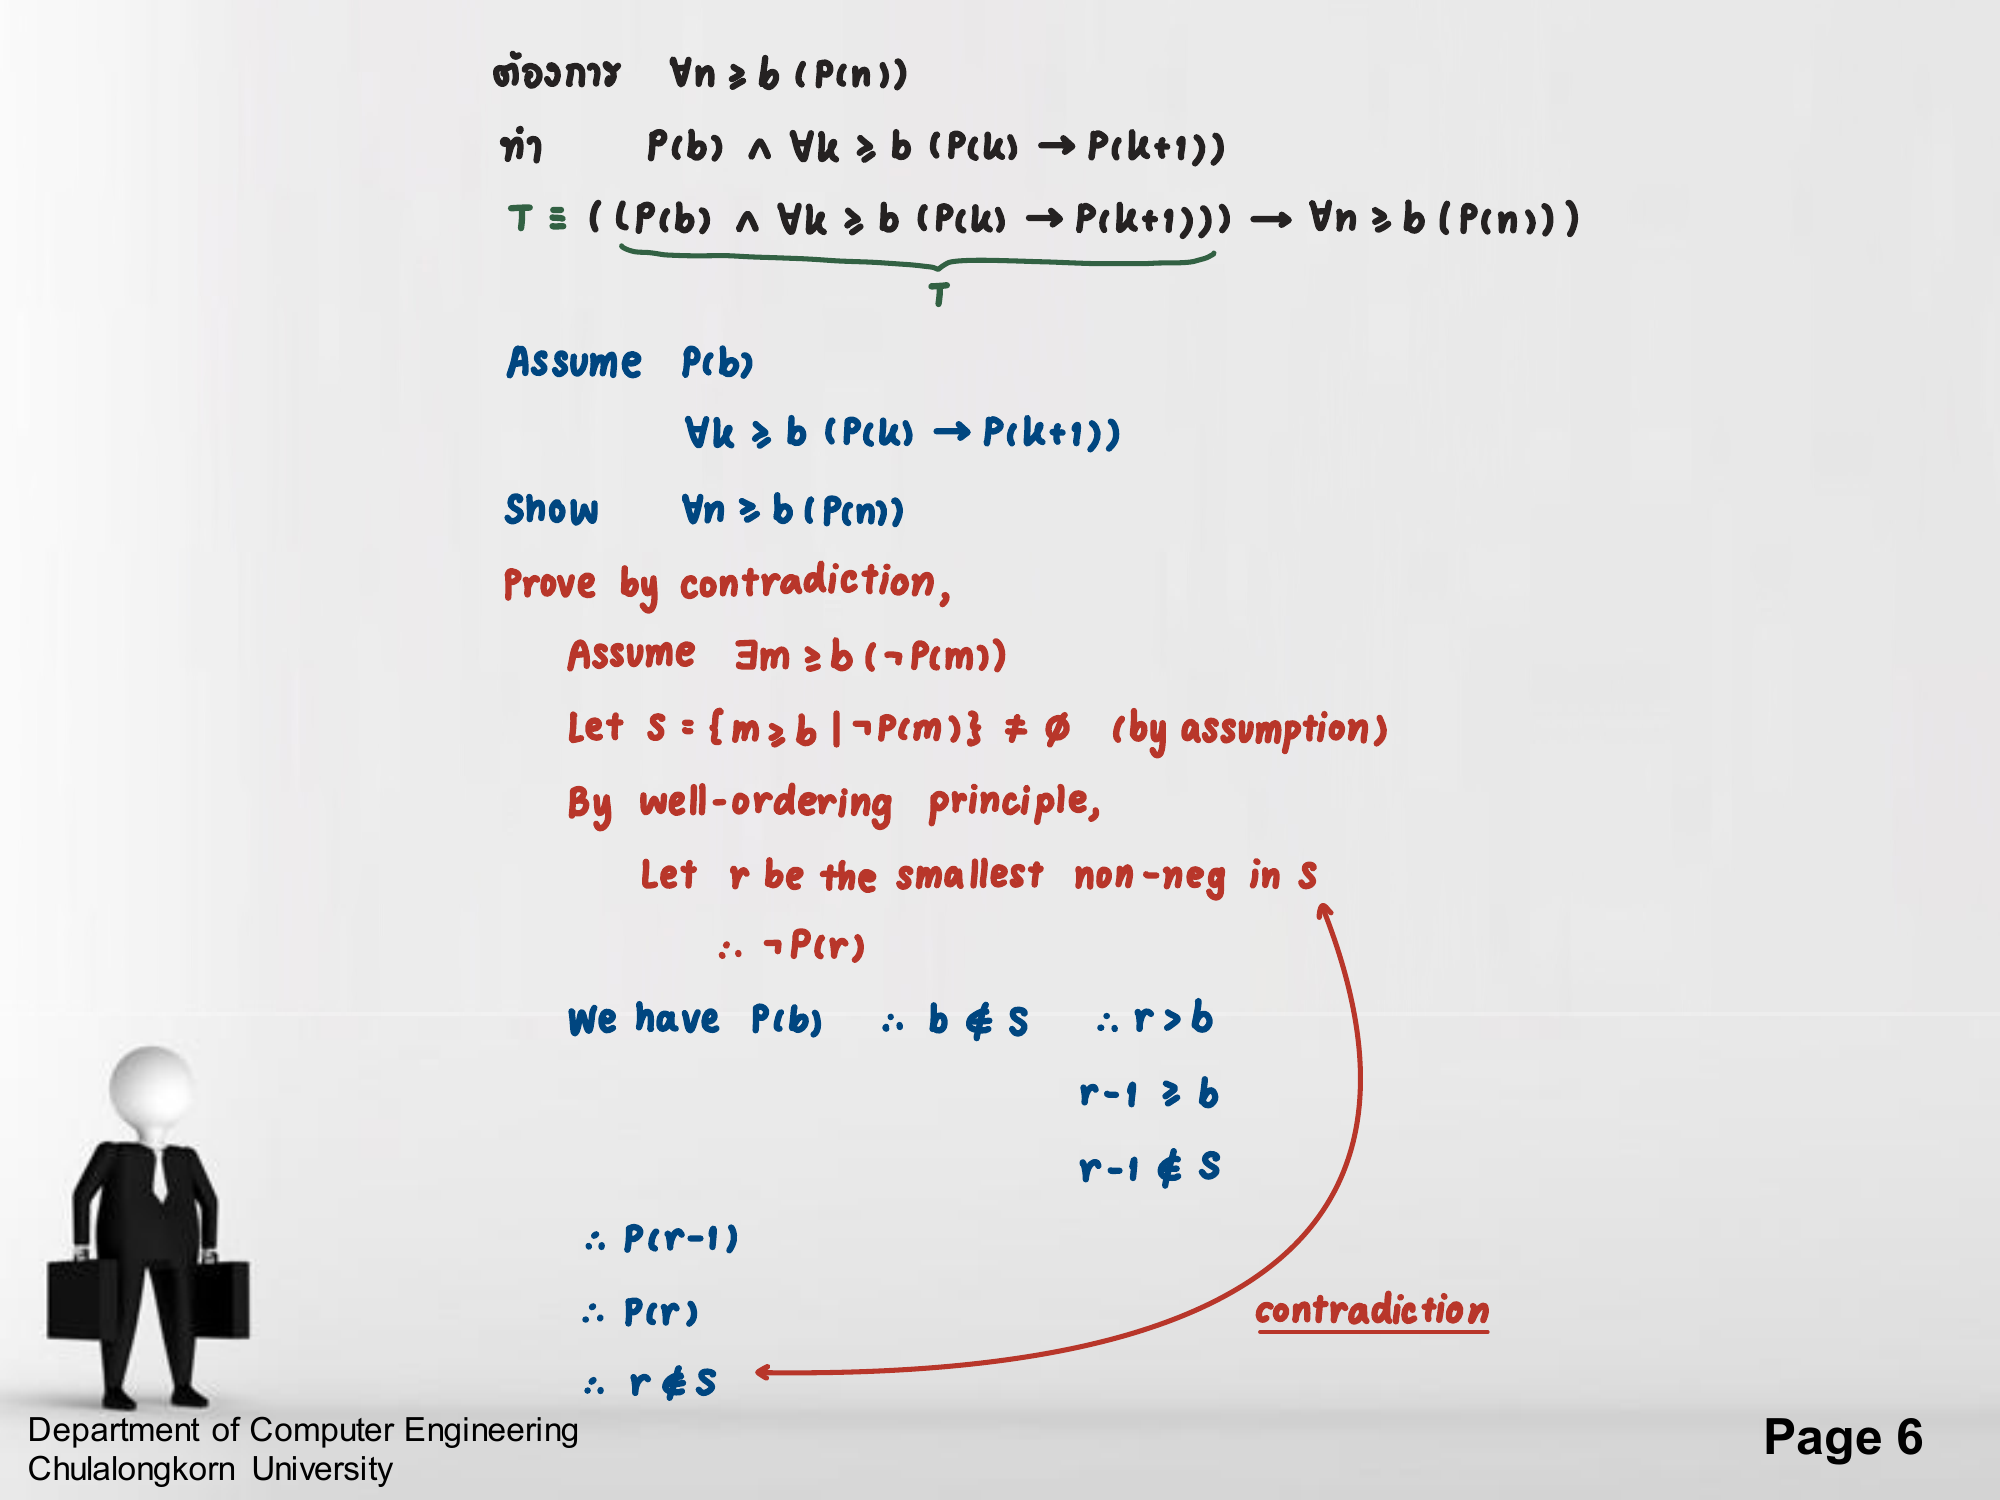 ต้องการ ∀n ≥ b (P(n))
ทำ P(b) ∧ ∀k ≥ b (P(k) → P(k+1))
T ≡ ((P(b) ∧ ∀k ≥ b (P(k) → P(k+1))) → ∀n ≥ b (P(n)))
T
Assume P(b)
∀k ≥ b (P(k) → P(k+1))
Show ∀n ≥ b (P(n))
Prove by contradiction,
Assume ∃m ≥ b (¬P(m))
Let S = {m ≥ b | ¬P(m)} ≠ ∅ (by assumption)
By well-ordering principle,
Let r be the smallest non-neg in S
∴ ¬P(r)
We have P(b) ∴ b ∉ S ∴ r > b
r-1 ≥ b
r-1 ∉ S
∴ P(r-1)
∴ P(r)
contradiction
∴ r ∉ S
Department of Computer Engineering
Chulalongkorn University
Page 6